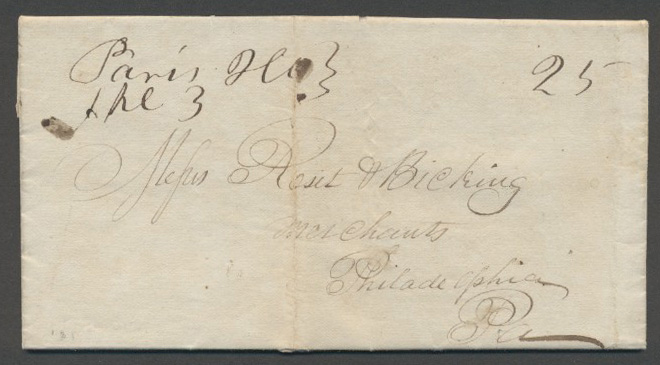 Paris Ill } 25
Apl 3
Messrs Reset & Bicking
Merchants
Philadelphia
Pa